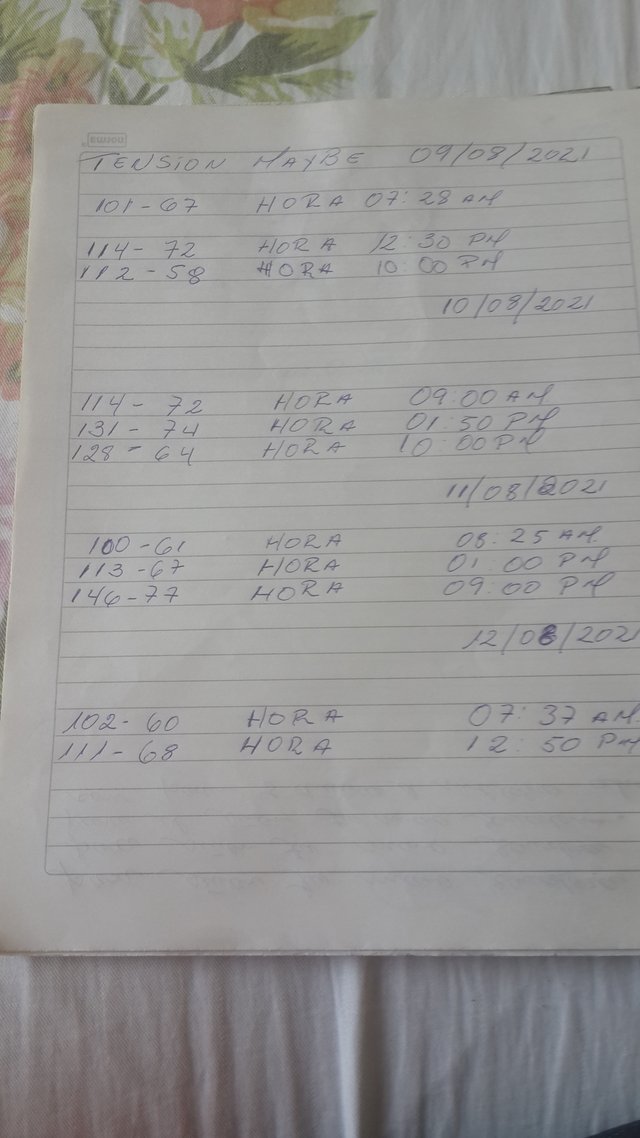 norma
TENSION MAYBE 09/08/2021
101-67 HORA 07:28 AM
114-72 HORA 12:30 PM
112-58 HORA 10:00 PM
10/08/2021
114-72 HORA 09:00 AM
131-74 HORA 01:50 PM
128-64 HORA 10:00 PM
11/08/2021
100-61 HORA 08:25 AM
113-67 HORA 01:00 PM
146-77 HORA 09:00 PM
12/08/2021
102-60 HORA 07:37 AM
111-68 HORA 12:50 PM